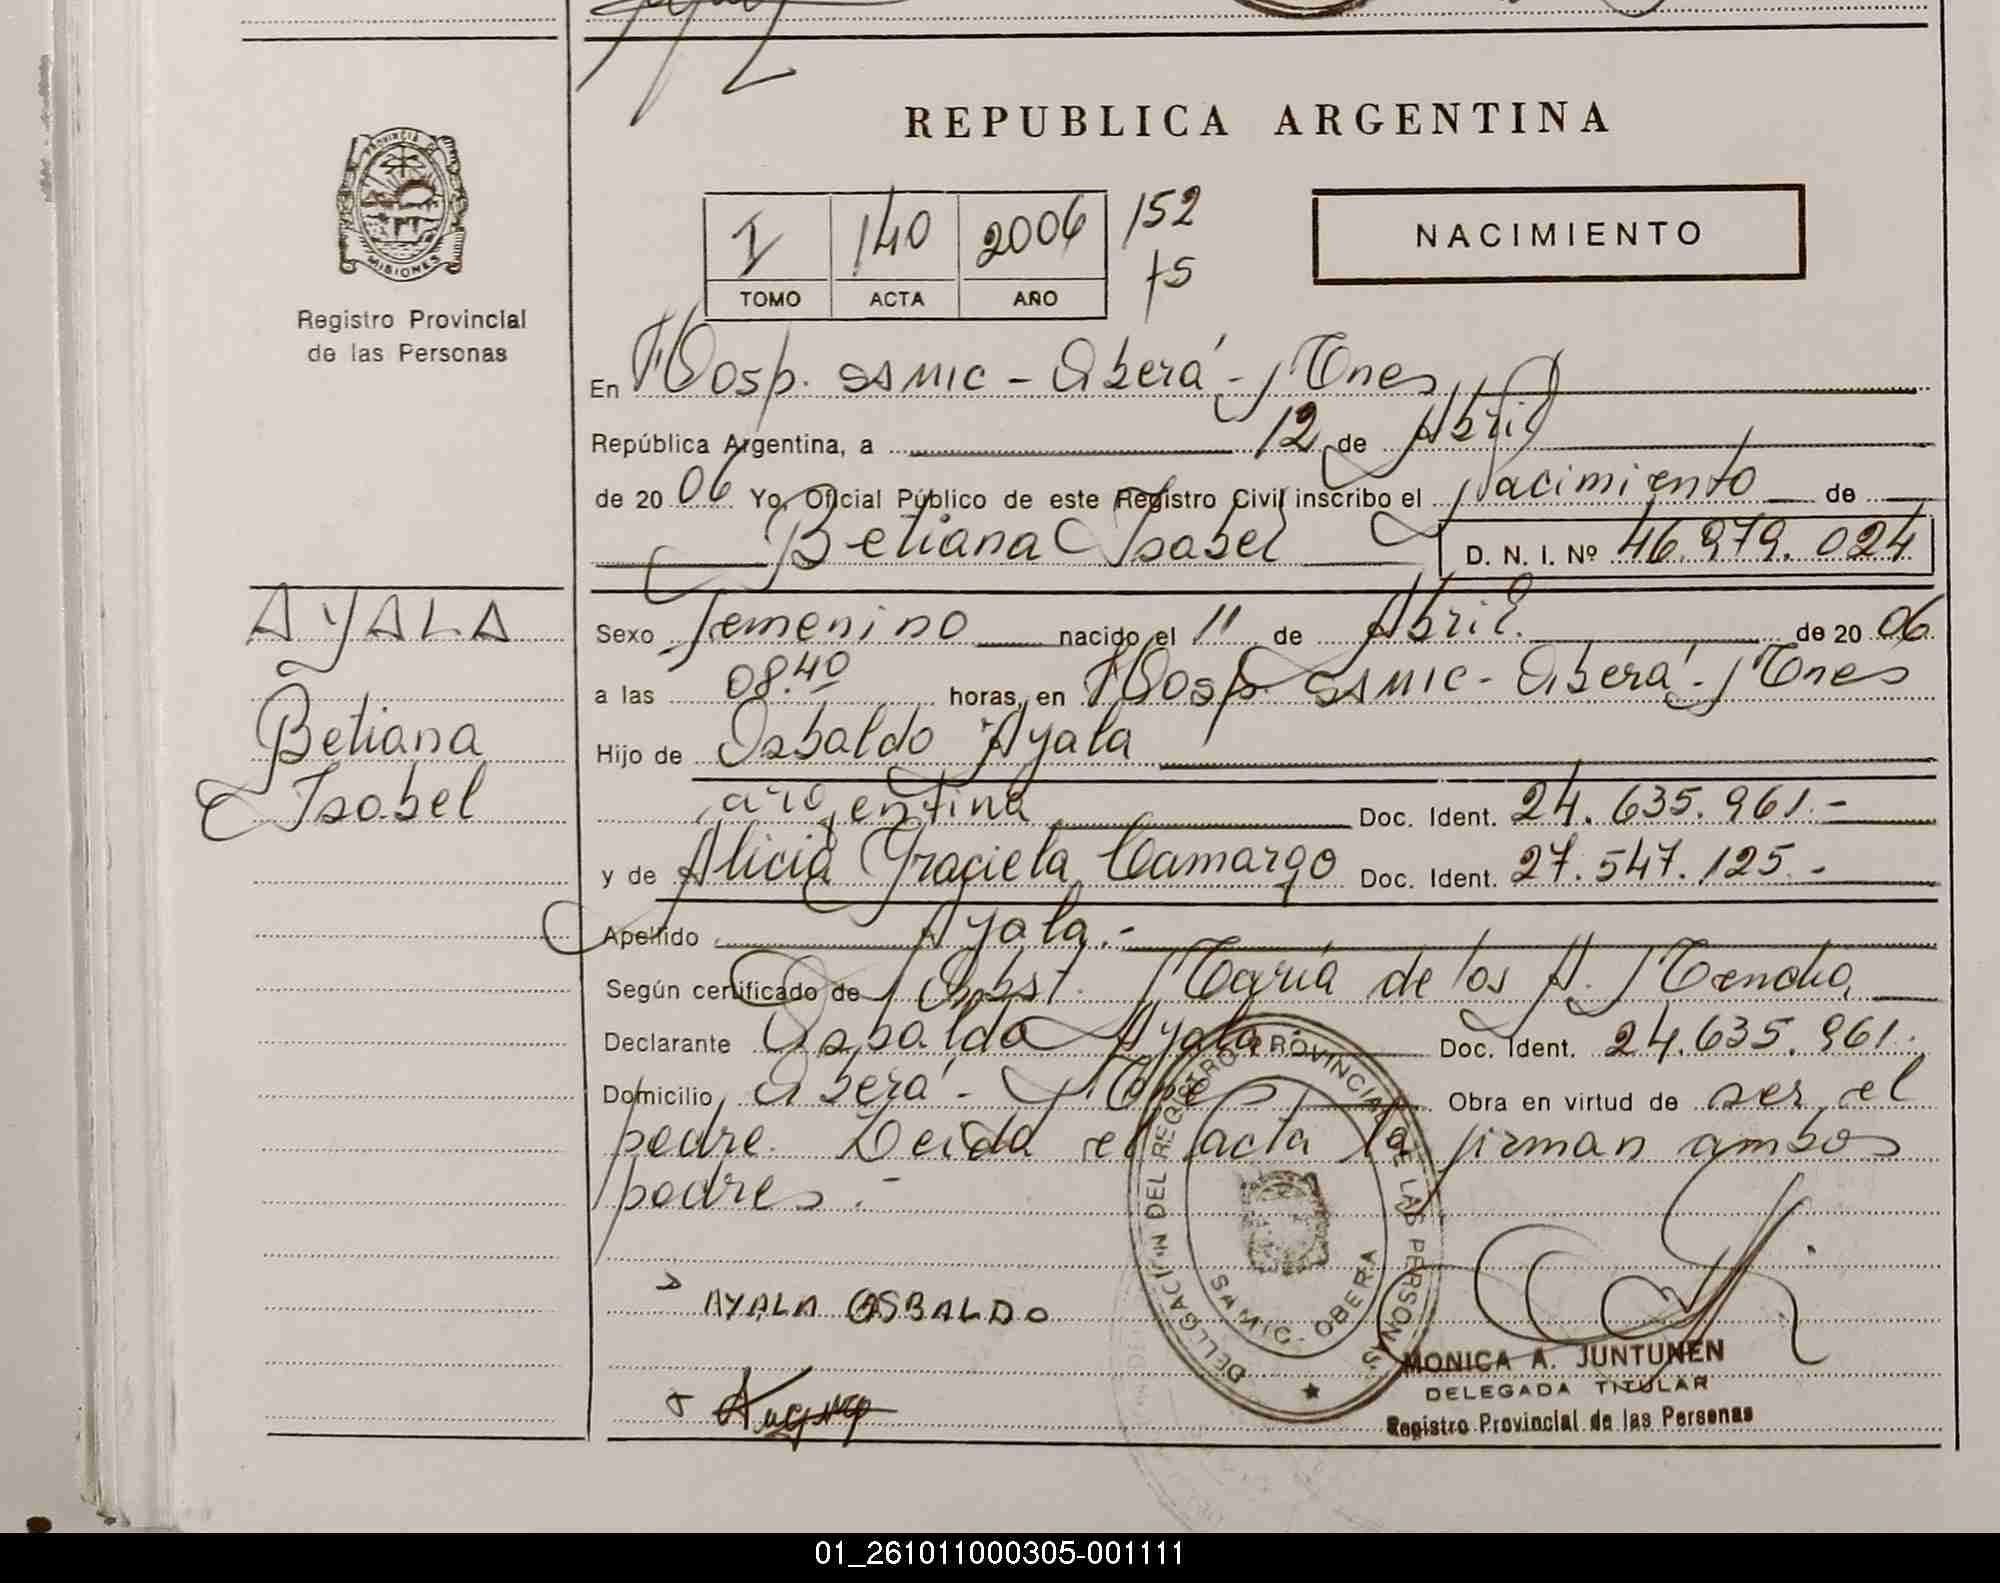 REPUBLICA ARGENTINA
PROVINCIA DE
MISIONES
Registro Provincial
de las Personas
I 140 2006 152
TOMO ACTA AÑO 75
NACIMIENTO
En Hosp. SAMIC - Oberá - Mnes
República Argentina, a 12 de Abril
de 20 06 Yo, Oficial Público de este Registro Civil inscribo el Nacimiento de
Betiana Isabel D. N. I. Nº 46.979.024
AYALA
Betiana
Isabel
Sexo femenino nacido el 11 de Abril de 20 06
a las 08.40 horas, en Hosp. SAMIC - Oberá - Mnes
Hijo de Osbaldo Ayala
argentina Doc. Ident. 24.635.961.-
y de Alicia Graciela Camargo Doc. Ident. 27.547.125.-
Apellido Ayala.-
Según certificado de Obst. María de los A.
Declarante Osbaldo Ayala Doc. Ident. 24.635.961.
Domicilio Oberá - Mnes Obra en virtud de ser el
padre. Leida el acta la firman ambos
padres.-
AYALA OSBALDO
DELEGACIÓN DEL REGISTRO PROVINCIAL DE LAS PERSONAS
SAMIC - OBERA
MONICA A. JUNTUNEN
DELEGADA TITULAR
Registro Provincial de las Personas
01_261011000305-001111